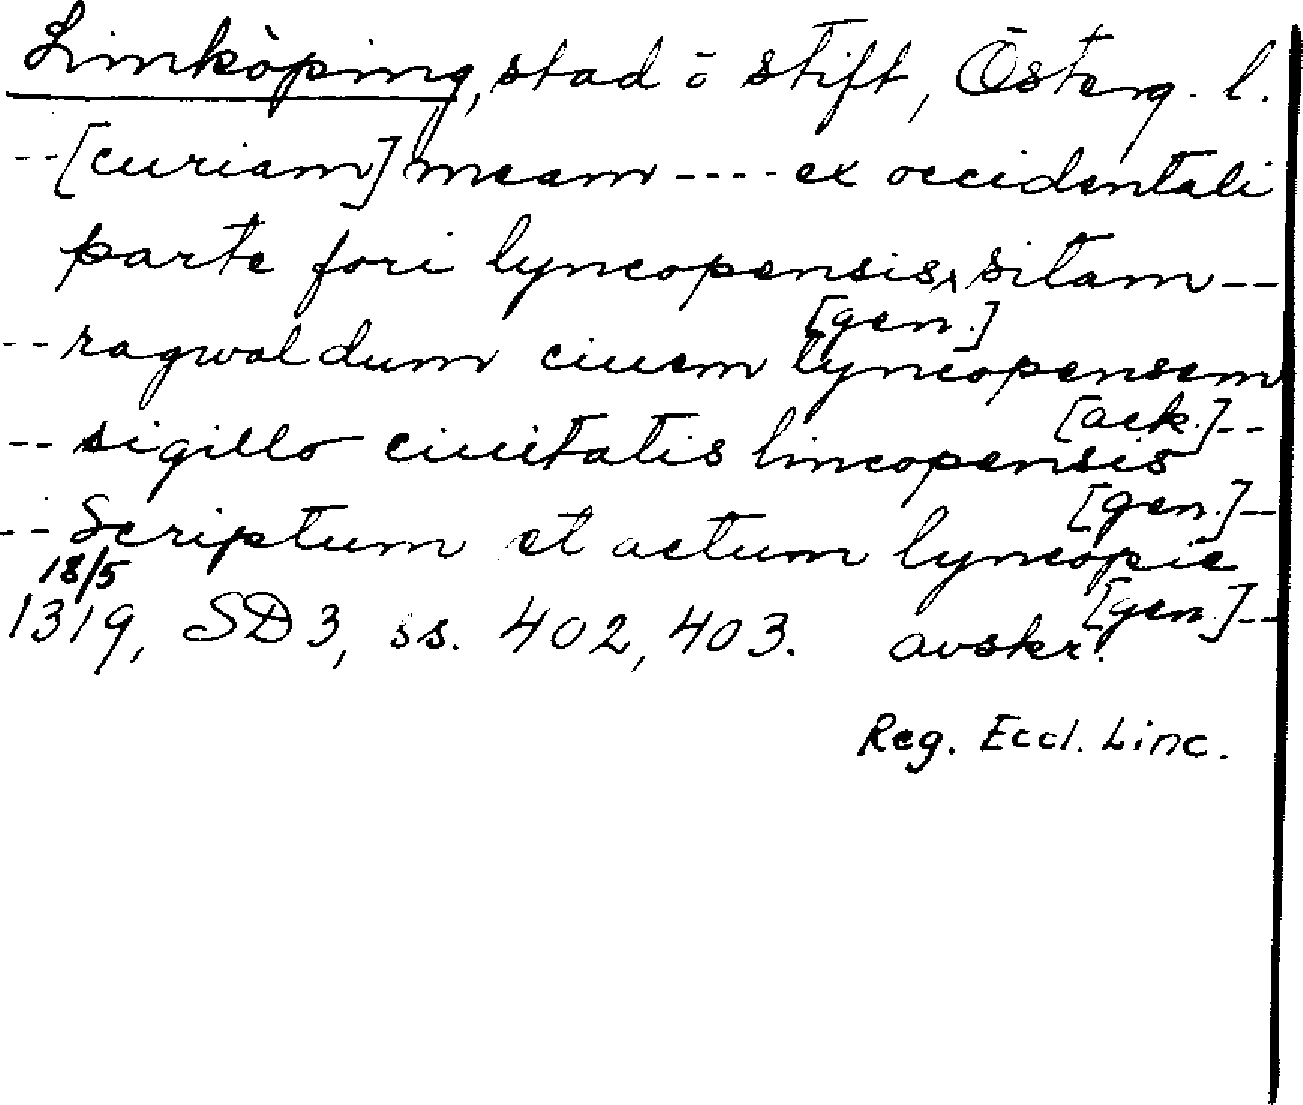 Linköping, stad o stift, Österg. l.
-- [curiam] meam ---- ex occidentali
parte fori lyncopensis, sitam --
[gen.]
-- ragwaldum ciuem lyncopensem
[ack.] --
-- sigillo ciuitatis lincopensis
[gen.] --
-- Scriptum et actum lyncopie
18/5 [gen.] --
1319, SD 3, ss. 402, 403. avskr.
Reg. Eccl. Linc.